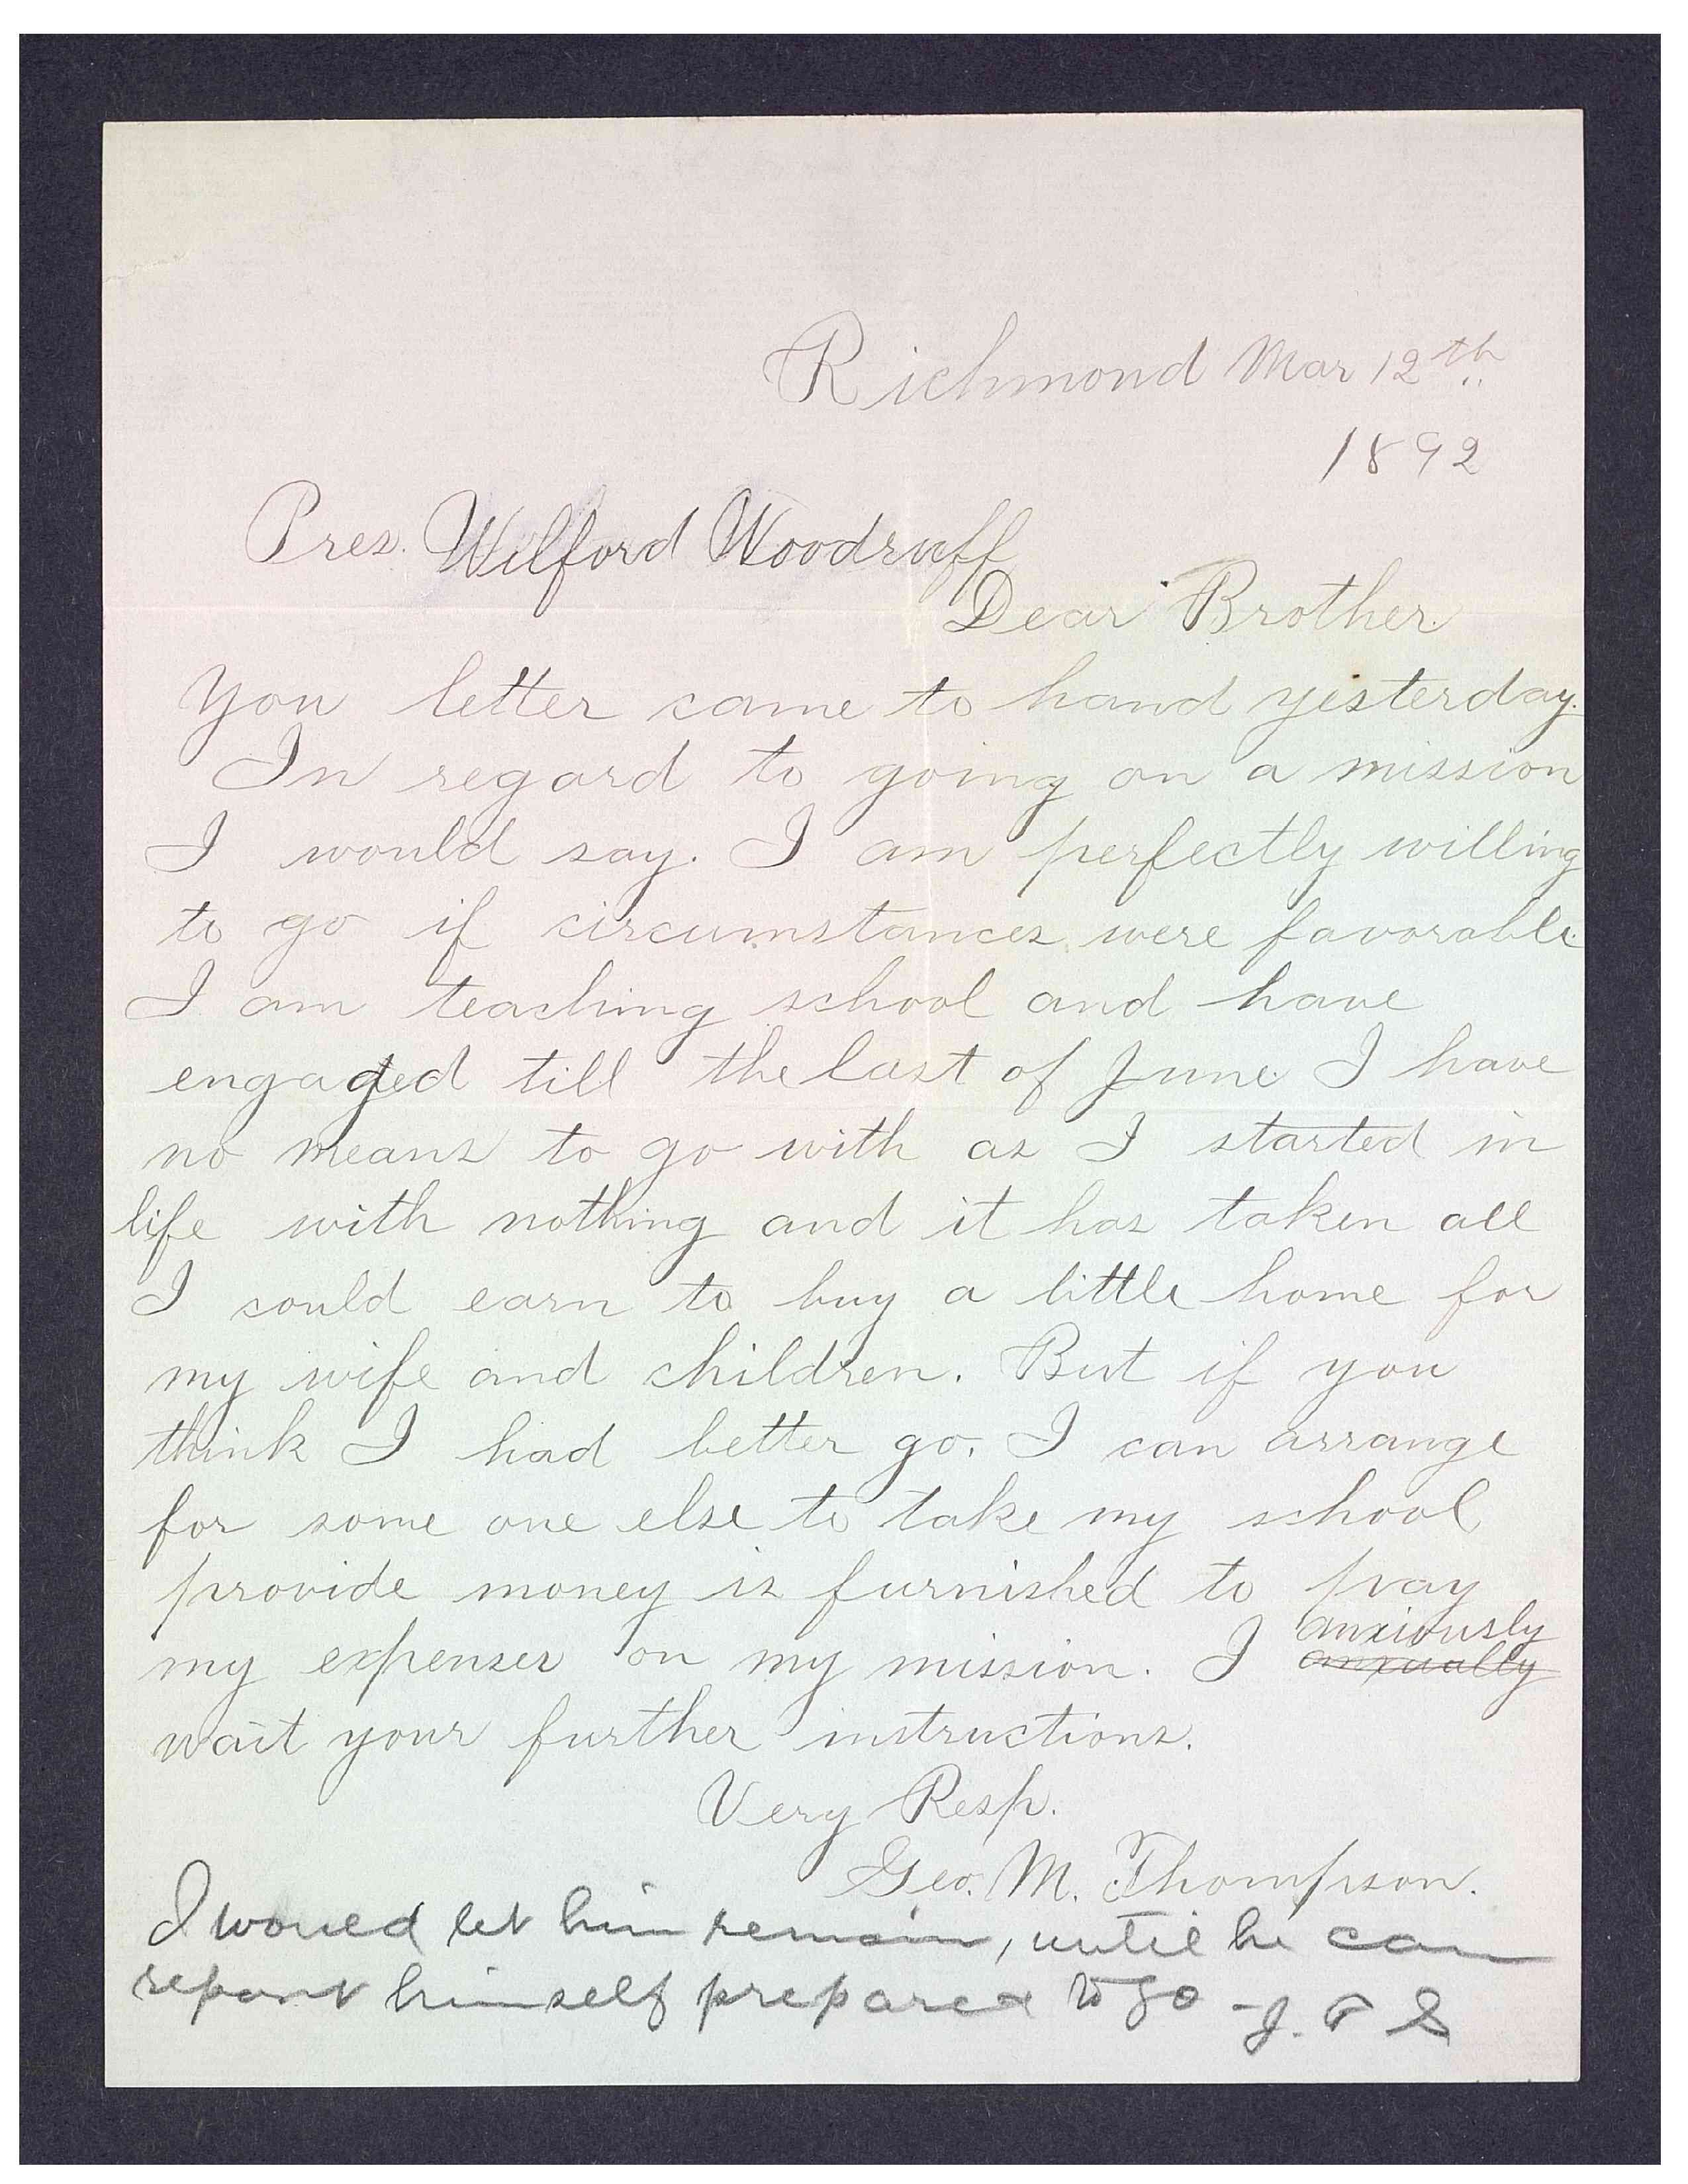 Richmond Mar 12th
1892
Pres. Wilford Woodruff
Dear Brother.
You letter came to hand yesterday.
In regard to going on a mission
I would say. I am perfectly willing
to go if circumstances were favorable.
I am teaching school and have
engaged till the last of June I have
no means to go with as I started in
life with nothing and it has taken all
I could earn to buy a little home for
my wife and children. But if you
think I had better go. I can arrange
for some one else to take my school
provide money is furnished to pay
anxiously
my expenses on my mission. I anxually
wait your further instructions.
Very Resp.
Geo. M. Thompson.
I would let him remain, until he can
report himself prepared to go - J. F S